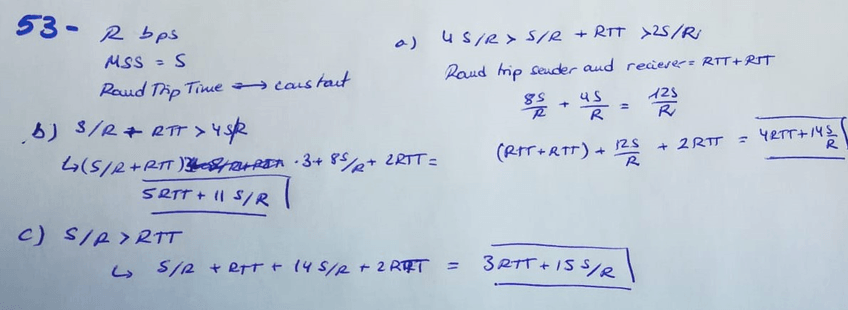 53-
R bps
MSS = S
Raud Trip Time → constant
a) 4 S/R > S/R + RTT > 2S/R
Raud trip sender and reciever = RTT + RTT
8S/R + 4S/R = 12S/R
(RTT+RTT) + 12S/R + 2RTT = 4RTT + 14 S/R
b) S/R + RTT > 4S/R
↳ (S/R + RTT) · 3 + 8S/R + 2RTT =
5RTT + 11 S/R
c) S/R > RTT
↳ S/R + RTT + 14 S/R + 2RTT = 3RTT + 15 S/R